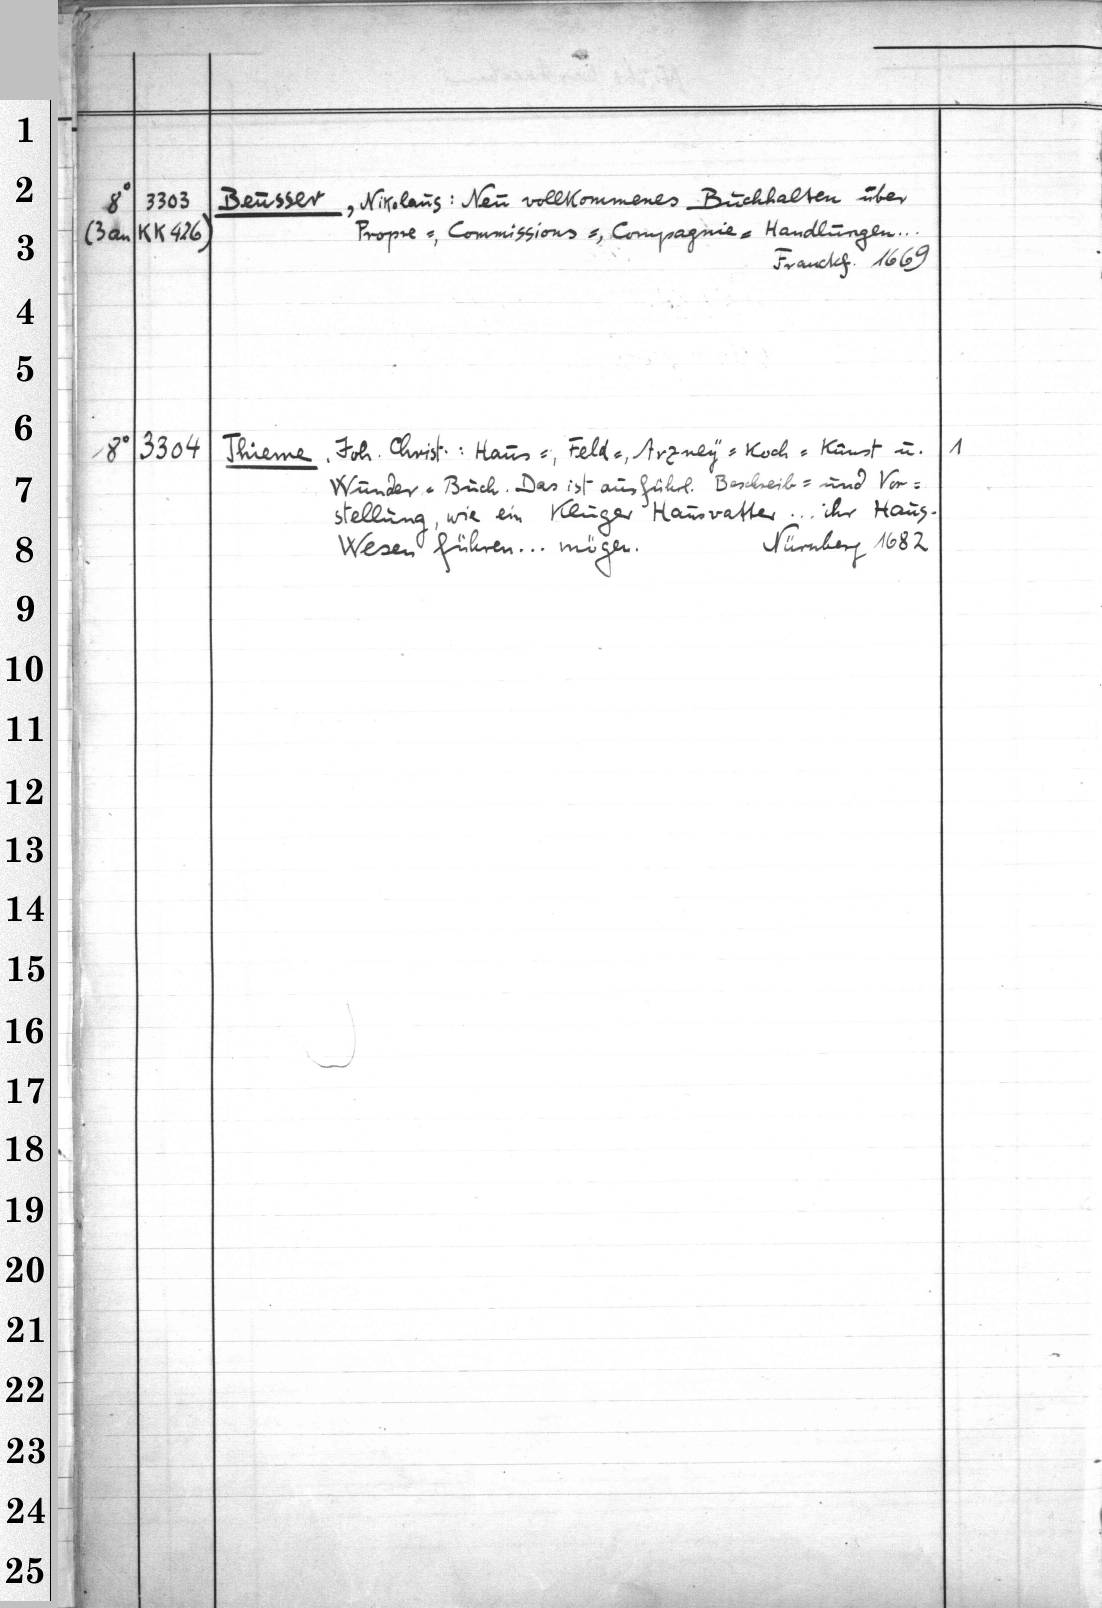 1
2
8° 3303 Beusser, Nikolaus: Neu vollkommenes Buchhalten über
(3 an KK 426) Propre=, Commissions=, Compagnie= Handlungen...
3
Franckf. 1669
4
5
6
8° 3304 Thieme, Joh. Christ.: Haus=, Feld=, Arzney= Koch= Kunst u. 1
7
Wunder= Buch. Das ist ausführl. Beschreib= und Vor=
stellung, wie ein Kluger Hausvatter ... ihr Haus-
8
Wesen führen... mögen. Nürnberg 1682
9
10
11
12
13
14
15
16
17
18
19
20
21
22
23
24
25